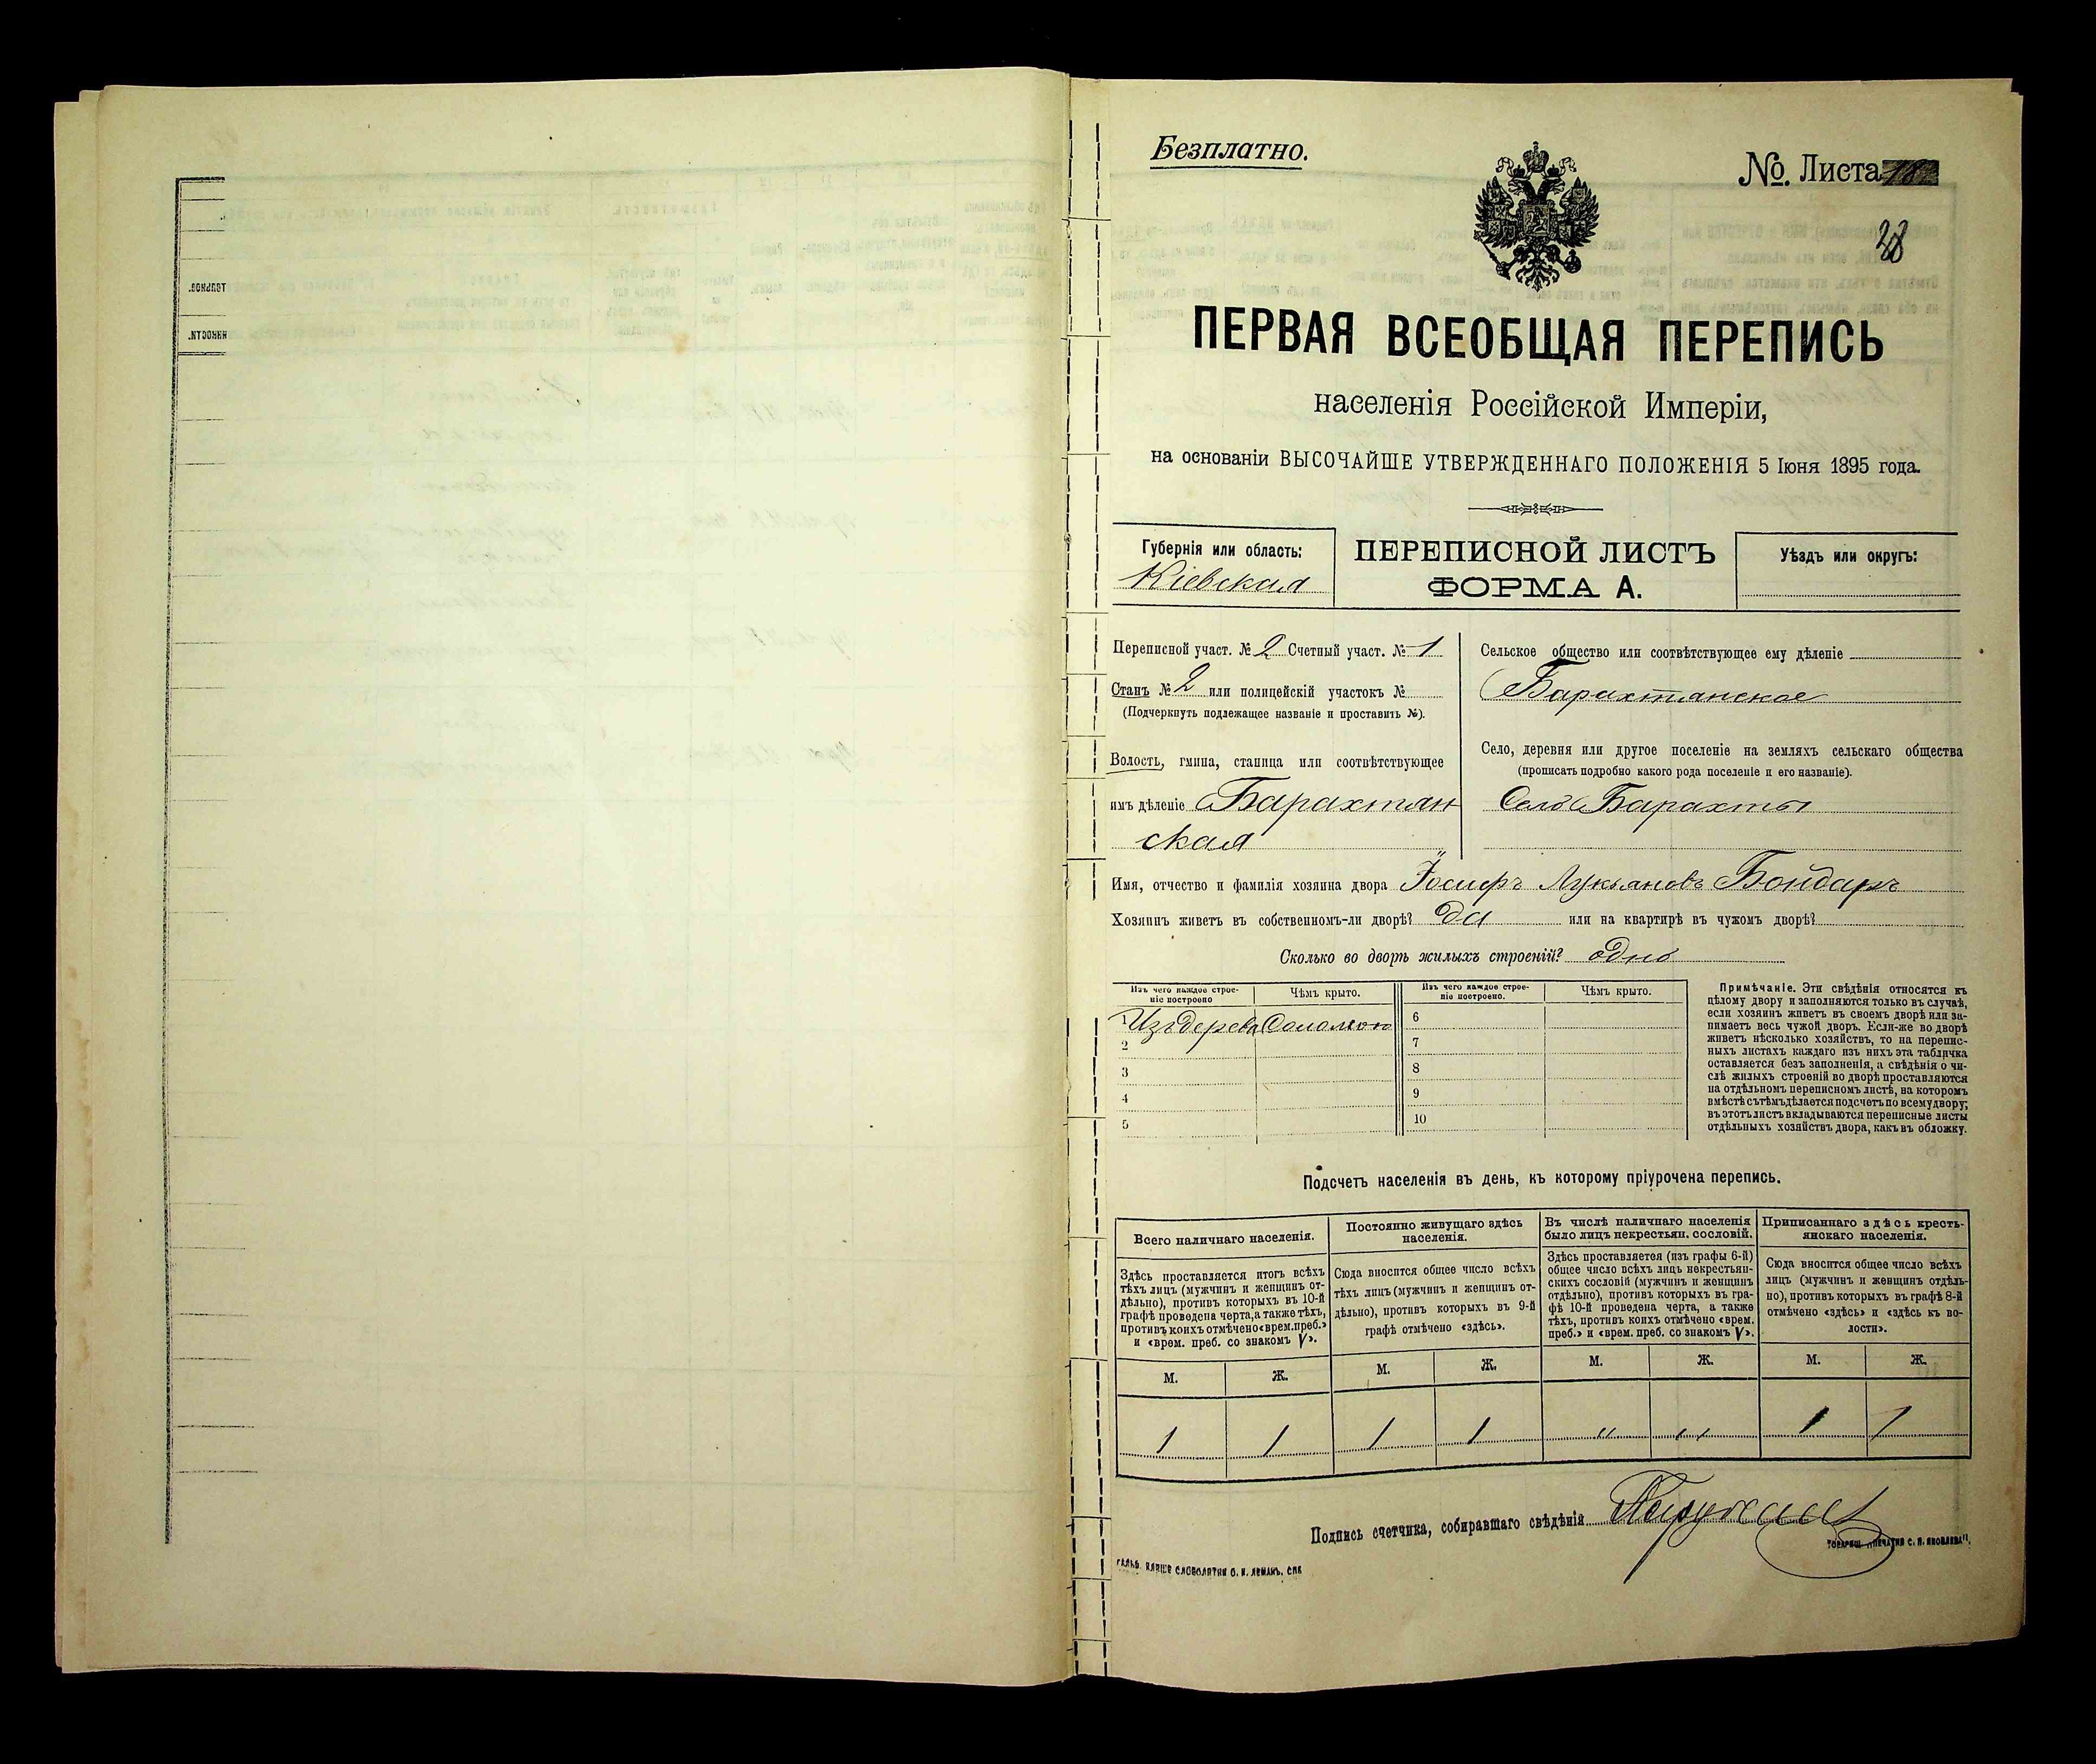 тельное.
нности.
Безплатно.
№. Листа 18
28
ПЕРВАЯ ВСЕОБЩАЯ ПЕРЕПИСЬ
населенія Россійской Имперіи,
на основаніи ВЫСОЧАЙШЕ УТВЕРЖДЕННАГО ПОЛОЖЕНІЯ 5 Іюня 1895 года.
Губернія или область:
Кіевская
ПЕРЕПИСНОЙ ЛИСТЪ
ФОРМА А.
Уѣздъ или округъ:
Переписной участ. № 2 Счетный участ. № 1
Станъ № 2 или полицейскій участокъ №
(Подчеркнуть подлежащее названіе и проставить №).
Волость, гмина, станица или соотвѣтствующее
имъ дѣленіе Барахтян
ская
Сельское общество или соотвѣтствующее ему дѣленіе
Барахтянское
Село, деревня или другое поселеніе на земляхъ сельскаго общества
(прописать подробно какого рода поселеніе и его названіе).
Село Барахты
Имя, отчество и фамилія хозяина двора Іосифъ Лукьяновъ Бондарь
Хозяинъ живетъ въ собственномъ-ли дворѣ? да или на квартирѣ въ чужомъ дворѣ?
Сколько во дворѣ жилыхъ строеній? одно
Изъ чего каждое строе-
ніе построено
Чѣмъ крыто.
Изъ чего каждое строе-
ніе построено.
Чѣмъ крыто.
1 Изъ дерева Соломою
2
3
4
5
6
7
8
9
10
Примѣчаніе. Эти свѣдѣнія относятся къ
цѣлому двору и заполняются только въ случаѣ,
если хозяинъ живетъ въ своемъ дворѣ или за-
нимаетъ весь чужой дворъ. Если-же во дворѣ
живетъ нѣсколько хозяйствъ, то на перепис-
ныхъ листахъ каждаго изъ нихъ эта табличка
оставляется безъ заполненія, а свѣдѣнія о чи-
слѣ жилыхъ строеній во дворѣ проставляются
на отдѣльномъ переписномъ листѣ, на которомъ
вмѣстѣ съ тѣмъ дѣлается подсчетъ по всему двору;
въ этотъ листъ вкладываются переписные листы
отдѣльныхъ хозяйствъ двора, какъ въ обложку.
Подсчетъ населенія въ день, къ которому пріурочена перепись.
Всего наличнаго населенія.
Здѣсь проставляется итогъ всѣхъ
тѣхъ лицъ (мужчинъ и женщинъ от-
дѣльно), противъ которыхъ въ 10-й
графѣ проведена черта, а также тѣхъ,
противъ коихъ отмѣчено «врем. преб.»
и «врем. преб. со знакомъ V».
Постоянно живущаго здѣсь
населенія.
Сюда вносится общее число всѣхъ
тѣхъ лицъ (мужчинъ и женщинъ от-
дѣльно), противъ которыхъ въ 9-й
графѣ отмѣчено «здѣсь».
Въ числѣ наличнаго населенія
было лицъ некрестьян. сословій.
Здѣсь проставляется (изъ графы 6-й)
общее число всѣхъ лицъ некрестьян-
скихъ сословій (мужчинъ и женщинъ
отдѣльно), противъ которыхъ въ гра-
фѣ 10-й проведена черта, а также
тѣхъ, противъ коихъ отмѣчено «врем.
преб.» и «врем. преб. со знакомъ V».
Приписаннаго здѣсь кресть-
янскаго населенія.
Сюда вносится общее число всѣхъ
лицъ (мужчинъ и женщинъ отдѣль-
но), противъ которыхъ въ графѣ 8-й
отмѣчено «здѣсь» и «здѣсь къ во-
лости».
М. Ж. М. Ж. М. Ж. М. Ж.
1 1 1 1 " " 1 1
Подпись счетчика, собиравшаго свѣдѣнія
ТОВАРИЩ. „ПЕЧАТНЯ С. П. ЯКОВЛЕВА".
О. И. ЛЕМАНЪ, СПБ